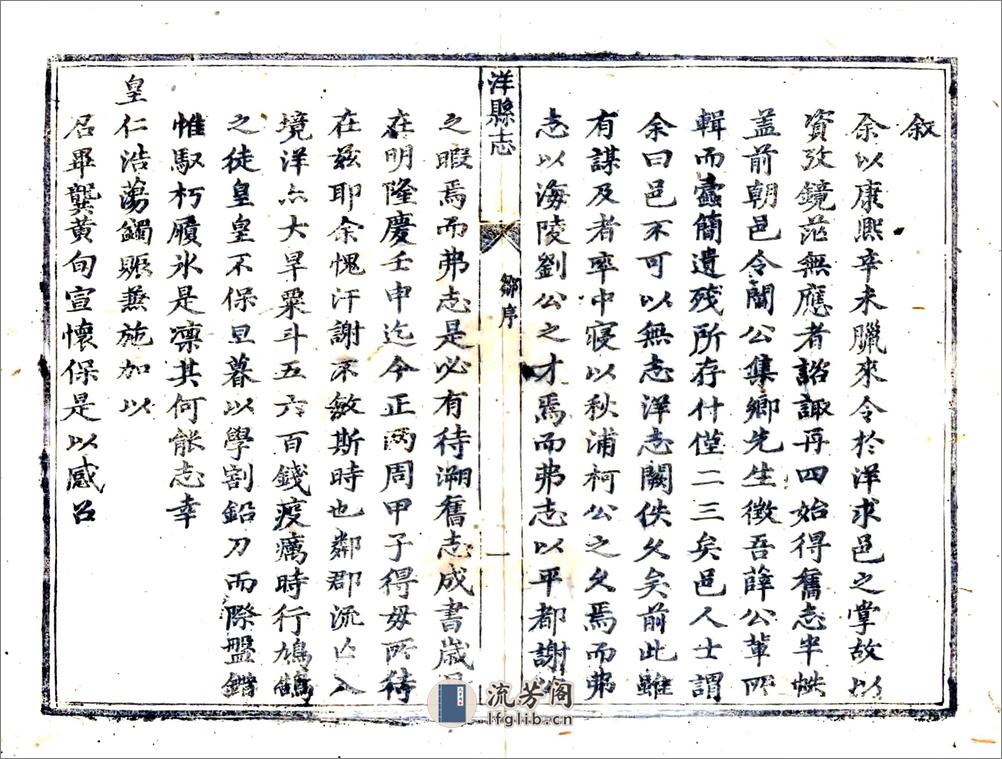 叙
余以康熙辛未臘來令於洋求邑之掌故以
資攷鏡茫無應者諮諏再四始得舊志半帙
蓋前朝邑令閻公集鄉先生徵吾薛公輩所
輯而蠹簡遺殘所存什僅二三矣邑人士謂
余曰邑不可以無志洋志闕佚久矣前此雖
有謀及者率中寢以秋浦柯公之久焉而弗
志以海陵劉公之才焉而弗志以平都謝
洋縣志
鄒序
一
之暇焉而弗志是必有待溯舊志成書歲
在明隆慶壬申迄今正兩周甲子得毋所待
在茲耶余愧汗謝不敏斯時也鄰郡流亡入
境洋亦大旱粟斗五六百錢疫癘時行鳩鵠
之徒皇皇不保旦暮以學割鉛刀而際盤錯
惟馭朽履冰是凜其何能志幸
皇仁浩蕩蠲賑兼施加以
召畢龔黃旬宣懷保是以感召
流芳阁
lfglib.cn